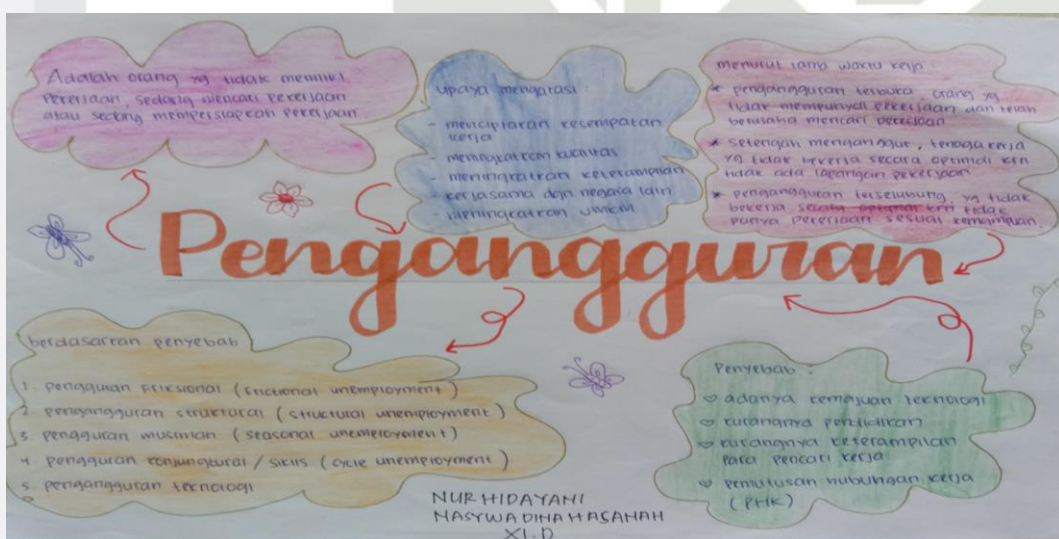 Adalah orang yg tidak memiliki
Pekerjaan, sedang mencari pekerjaan
atau sedang mempersiapkan pekerjaan
upaya mengatasi:
- menciptakan kesempatan
kerja
- meningkatkan kualitas
- meningkatkan keterampilan
- kerjasama dgn negara lain
- meningkatkan umkm
menurut lama waktu kerja:
* pengangguran terbuka orang yg
tidak mempunyai pekerjaan dan telah
berusaha mencari pekerjaan
* setengah menganggur, tenaga kerja
yg tidak bekerja secara optimal krn
tidak ada lapangan pekerjaan
* pengangguran terselubung, yg tidak
bekerja secara optimal krn tidak
punya pekerjaan sesuai kemampuan.
Pengangguran
berdasarkan penyebab
1. pengguran friksional (frictional unemployment)
2. pengangguran struktural (structural unemployment)
3. pengguran musiman (seasonal unemployement)
4. pengguran konjungtural / siklis (cycle unemployment)
5. pengangguran teknologi
Penyebab :
adanya kemajuan teknologi
kurangnya pendidikan
kurangnya keterampilan
para pencari kerja
pemutusan hubungan kerja
(PHK)
NUR HIDAYANI
NASYWA DINA HASANAH
XI.D